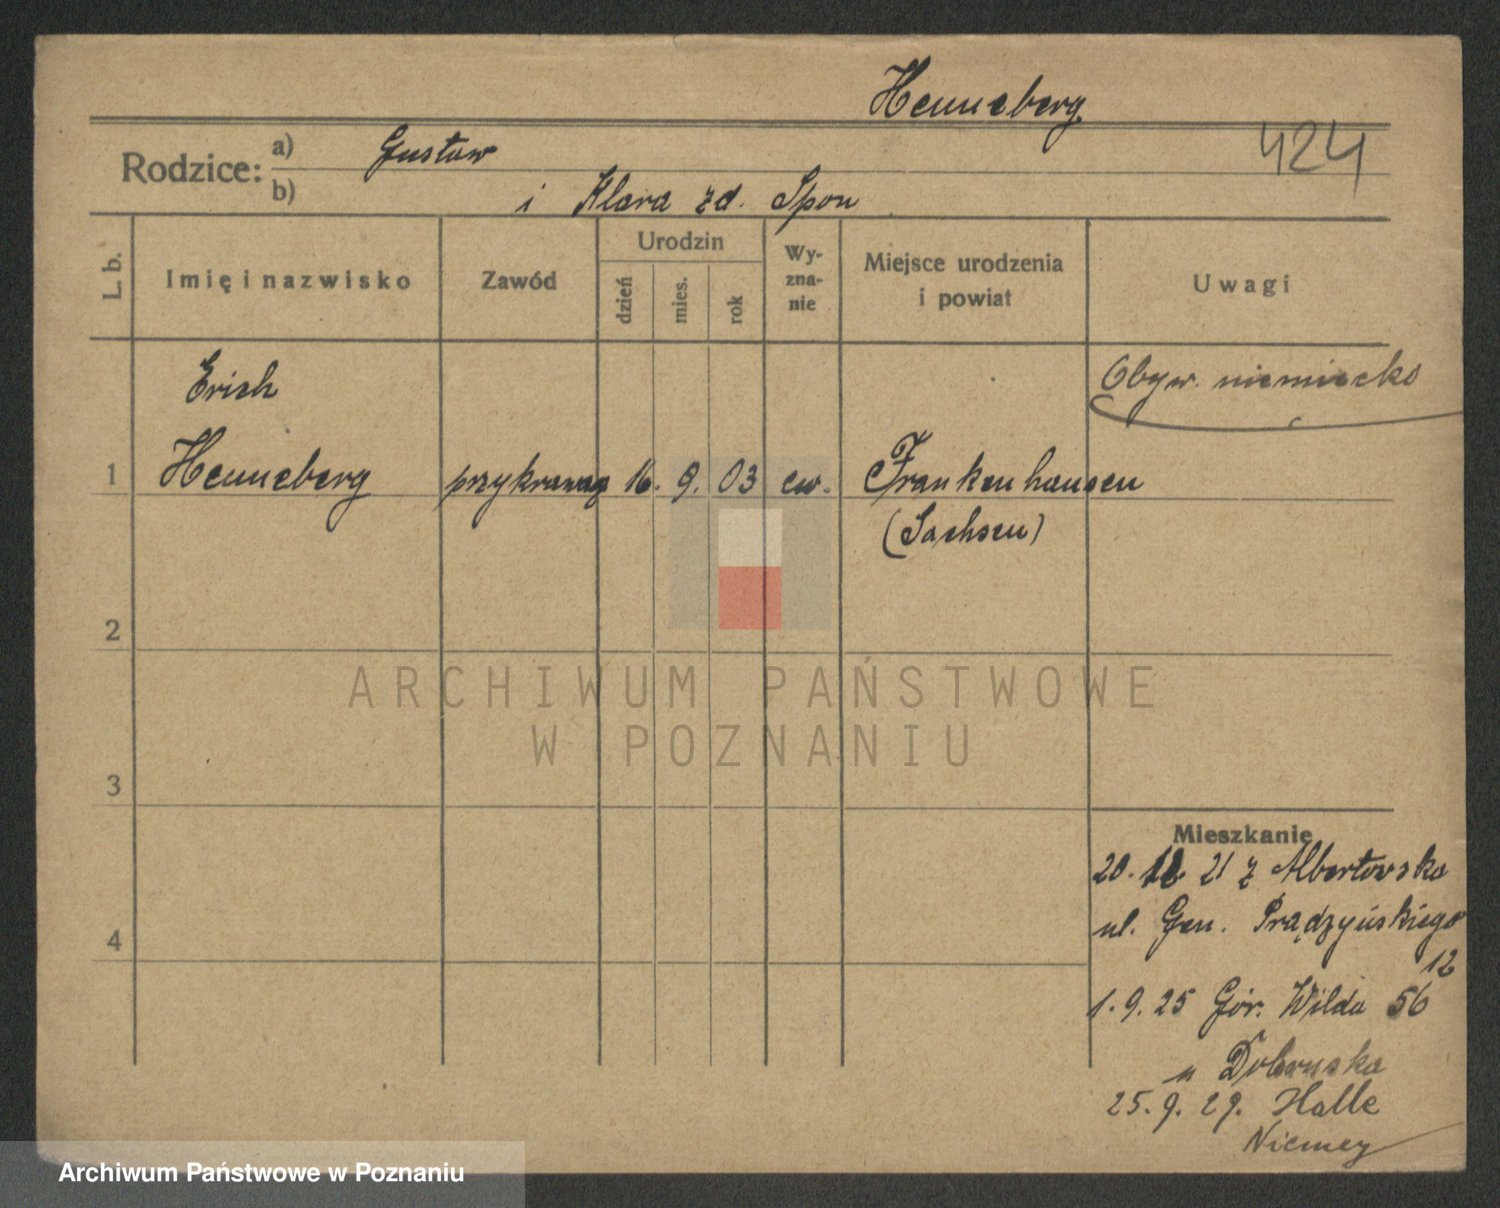 Henneberg
424
Rodzice: a) Gustaw
b) i Klara zd. Spon
L. b.
Imię i nazwisko
Zawód
Urodzin
dzień
mies.
rok
Wy-
zna-
nie
Miejsce urodzenia
i powiat
Uwagi
Erich
Obyw. niemiecko
1 Henneberg przykrawacz 16. 9. 03 ew. Frankenhausen
(Sachsen)
2
3
4
Mieszkanie
20. 12 21 z Albertowska
ul. Gen. Prądzyńskiego
12
1. 9. 25 Gór. Wilda 56
u Dobruska
25. 9. 29. Halle
Niemcy
ARCHIWUM PAŃSTWOWE
W POZNANIU
Archiwum Państwowe w Poznaniu